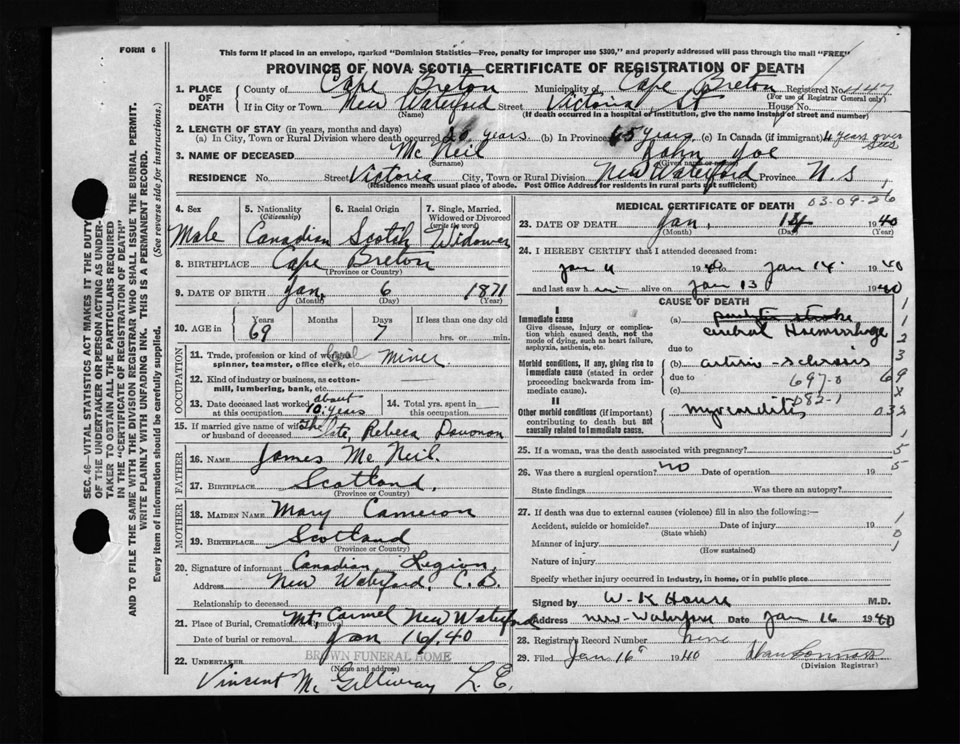 FORM 6
This form if placed in an envelope, marked "Dominion Statistics—Free, penalty for improper use $300," and properly addressed will pass through the mail "FREE"
PROVINCE OF NOVA SCOTIA—CERTIFICATE OF REGISTRATION OF DEATH
1. PLACE OF DEATH
County of Cape Breton Municipality of Cape Breton Registered No. 447
(For use of Registrar General only)
If in City or Town New Waterford Street Victoria St House No.
(Name) (If death occurred in a hospital or institution, give the name instead of street and number)
2. LENGTH OF STAY (in years, months and days)
(a) In City, Town or Rural Division where death occurred 20 years (b) In Province 65 years (c) In Canada (if immigrant) 4 years over
3. NAME OF DECEASED Mc Neil John Joe
(Surname) (Given name or names)
RESIDENCE No. Street Victoria City, Town or Rural Division New Waterford Province N.S
(Residence means usual place of abode. Post Office Address for residents in rural parts not sufficient)
4. Sex
Male
5. Nationality
(Citizenship)
Canadian
6. Racial Origin
Scotch
7. Single, Married, Widowed or Divorced
(write the word)
Widower
8. BIRTHPLACE Cape Breton
(Province or Country)
9. DATE OF BIRTH Jan. 6 1871
(Month) (Day) (Year)
10. AGE in Years Months Days If less than one day old
69 7 hrs. or min.
OCCUPATION
11. Trade, profession or kind of work as spinner, teamster, office clerk, etc. Coal Miner
12. Kind of industry or business, as cotton-mill, lumbering, bank, etc.
13. Date deceased last worked at this occupation about 10 years
14. Total yrs. spent in this occupation
15. If married give name of wife or husband of deceased The late, Rebeca
FATHER
16. NAME James Mc Neil.
17. BIRTHPLACE Scotland.
(Province or Country)
MOTHER
18. MAIDEN NAME Mary Cameron
19. BIRTHPLACE Scotland
(Province or Country)
20. Signature of informant Canadian Legion,
Address New Waterford, C.B.
Relationship to deceased
21. Place of Burial, Cremation or Removal Mt. Carmel New Waterford
Date of burial or removal Jan 16/40
BROWN FUNERAL HOME
22. UNDERTAKER
(Name and address)
Vincent Mc Gillivray L.E.
MEDICAL CERTIFICATE OF DEATH
03-09-26
23. DATE OF DEATH Jan. 14 1940
(Month) (Day) (Year)
24. I HEREBY CERTIFY that I attended deceased from:
Jan 1940 to Jan 14 1940
and last saw h im alive on Jan 13 1940
CAUSE OF DEATH
I
Immediate cause
Give disease, injury or complication which caused death, not the mode of dying, such as heart failure, asphyxia, asthenia, etc.
(a) stroke
Cerebral Haemorrhage
due to
Morbid conditions, if any, giving rise to immediate cause (stated in order proceeding backwards from immediate cause).
(b) arterio-sclerosis
due to 697-8
(c) 082-1
II
Other morbid conditions (if important) contributing to death but not causally related to immediate cause.
myocarditis
1
1
2
3
69
x
032
25. If a woman, was the death associated with pregnancy?
26. Was there a surgical operation? no Date of operation 19
State findings Was there an autopsy?
27. If death was due to external causes (violence) fill in also the following:—
Accident, suicide or homicide? Date of injury 19
(State which)
Manner of injury
(How sustained)
Nature of injury
Specify whether injury occurred in industry, in home, or in public place
Signed by W-K House M.D.
Address New-Waterford Date Jan 16 1940
28. Registrar's Record Number nine
29. Filed Jan 16 1940
(Division Registrar)
SEC. 46—VITAL STATISTICS ACT MAKES IT THE DUTY OF THE UNDERTAKER OR PERSON ACTING AS UNDERTAKER TO OBTAIN ALL THE PARTICULARS REQUIRED IN THE "CERTIFICATE OF REGISTRATION OF DEATH"
AND TO FILE THE SAME WITH THE DIVISION REGISTRAR WHO SHALL ISSUE THE BURIAL PERMIT.
WRITE PLAINLY WITH UNFADING INK. THIS IS A PERMANENT RECORD.
Every item of information should be carefully supplied. (See reverse side for instructions.)